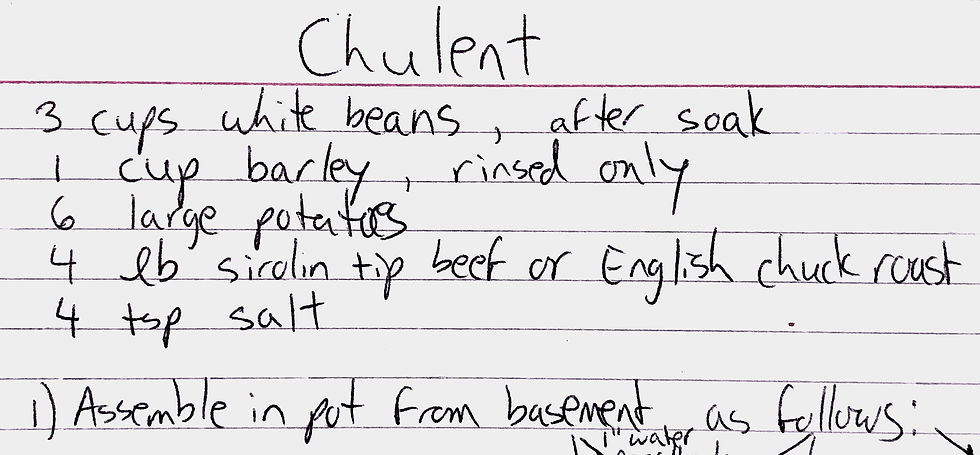 Chulent
3 cups white beans, after soak
1 cup barley, rinsed only
6 large potatoes
4 lb sirolin tip beef or English chuck roast
4 tsp salt
1) Assemble in pot from basement as follows:
1" water